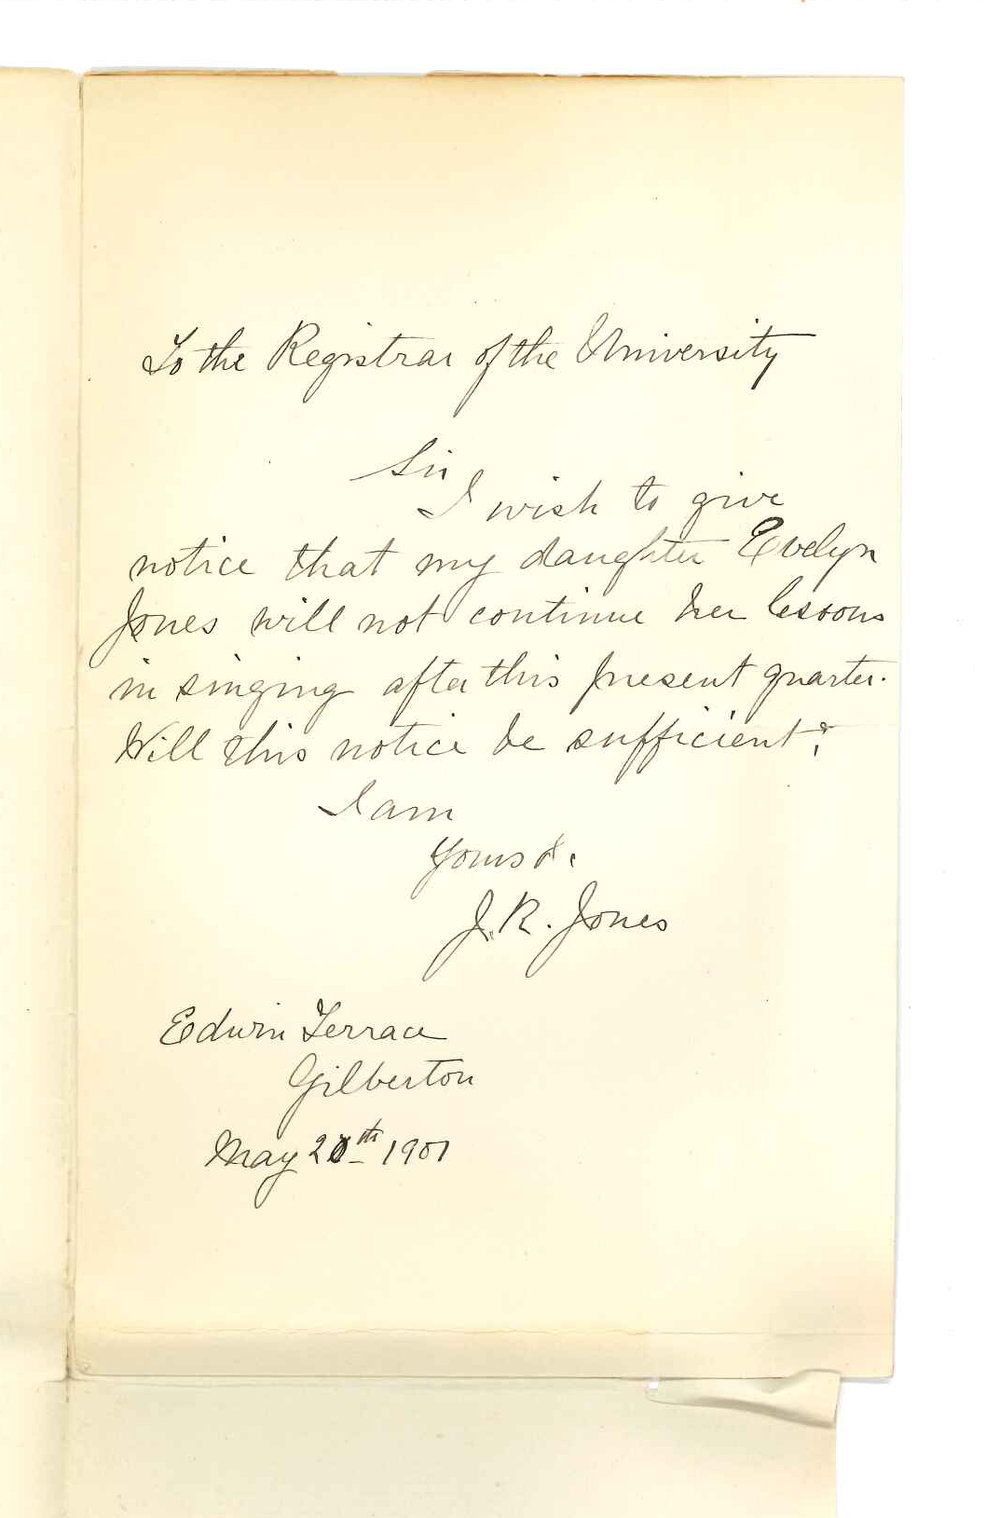 To the Registrar of the University
Sir
I wish to give
notice that my daughter Evelyn
Jones will not continue her lessons
in singing after this present quarter.
Will this notice be sufficient?
I am
Yours &.
J. R. Jones
Edwin Terrace
Gilberton
May 20th 1901